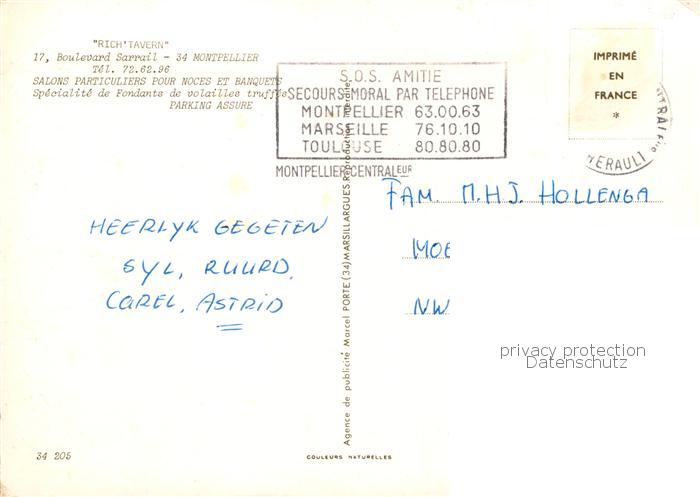 "RICH'TAVERN"
17, Boulevard Sarrail - 34 MONTPELLIER
Tél. 72.62.96
SALONS PARTICULIERS POUR NOCES ET BANQUETS
Spécialité de Fondants de volailles truffés
PARKING ASSURE
S.O.S. AMITIE
SECOURS MORAL PAR TELEPHONE
MONTPELLIER 63.00.63
MARSEILLE 76.10.10
TOULOUSE 80.80.80
MONTPELLIER CENTRALEUR
IMPRIMÉ
EN
FRANCE
*
HERAULT
FAM. M.H.J. HOLLENGA
MOE
NW
HEERLYK GEGETEN
SYL, RUURD,
CAREL, ASTRID
Agence de publicité Marcel PORTE (34) MARSILLARGUES. Reproduction interdite
privacy protection
Datenschutz
34 205
COULEURS NATURELLES